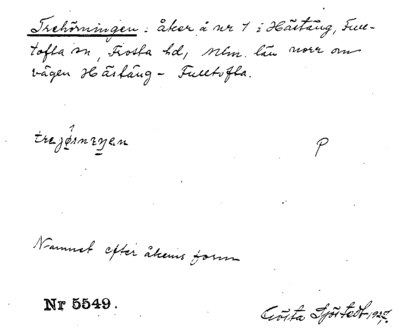 Trehörningen: åker å nr 1 i Hästäng, Full-
tofta sn, Frosta hd, Mlm. län norr om
vägen Hästäng - Fulltofta.
P
Namnet efter åkerns form
Nr 5549.
Gösta Sjöstedt